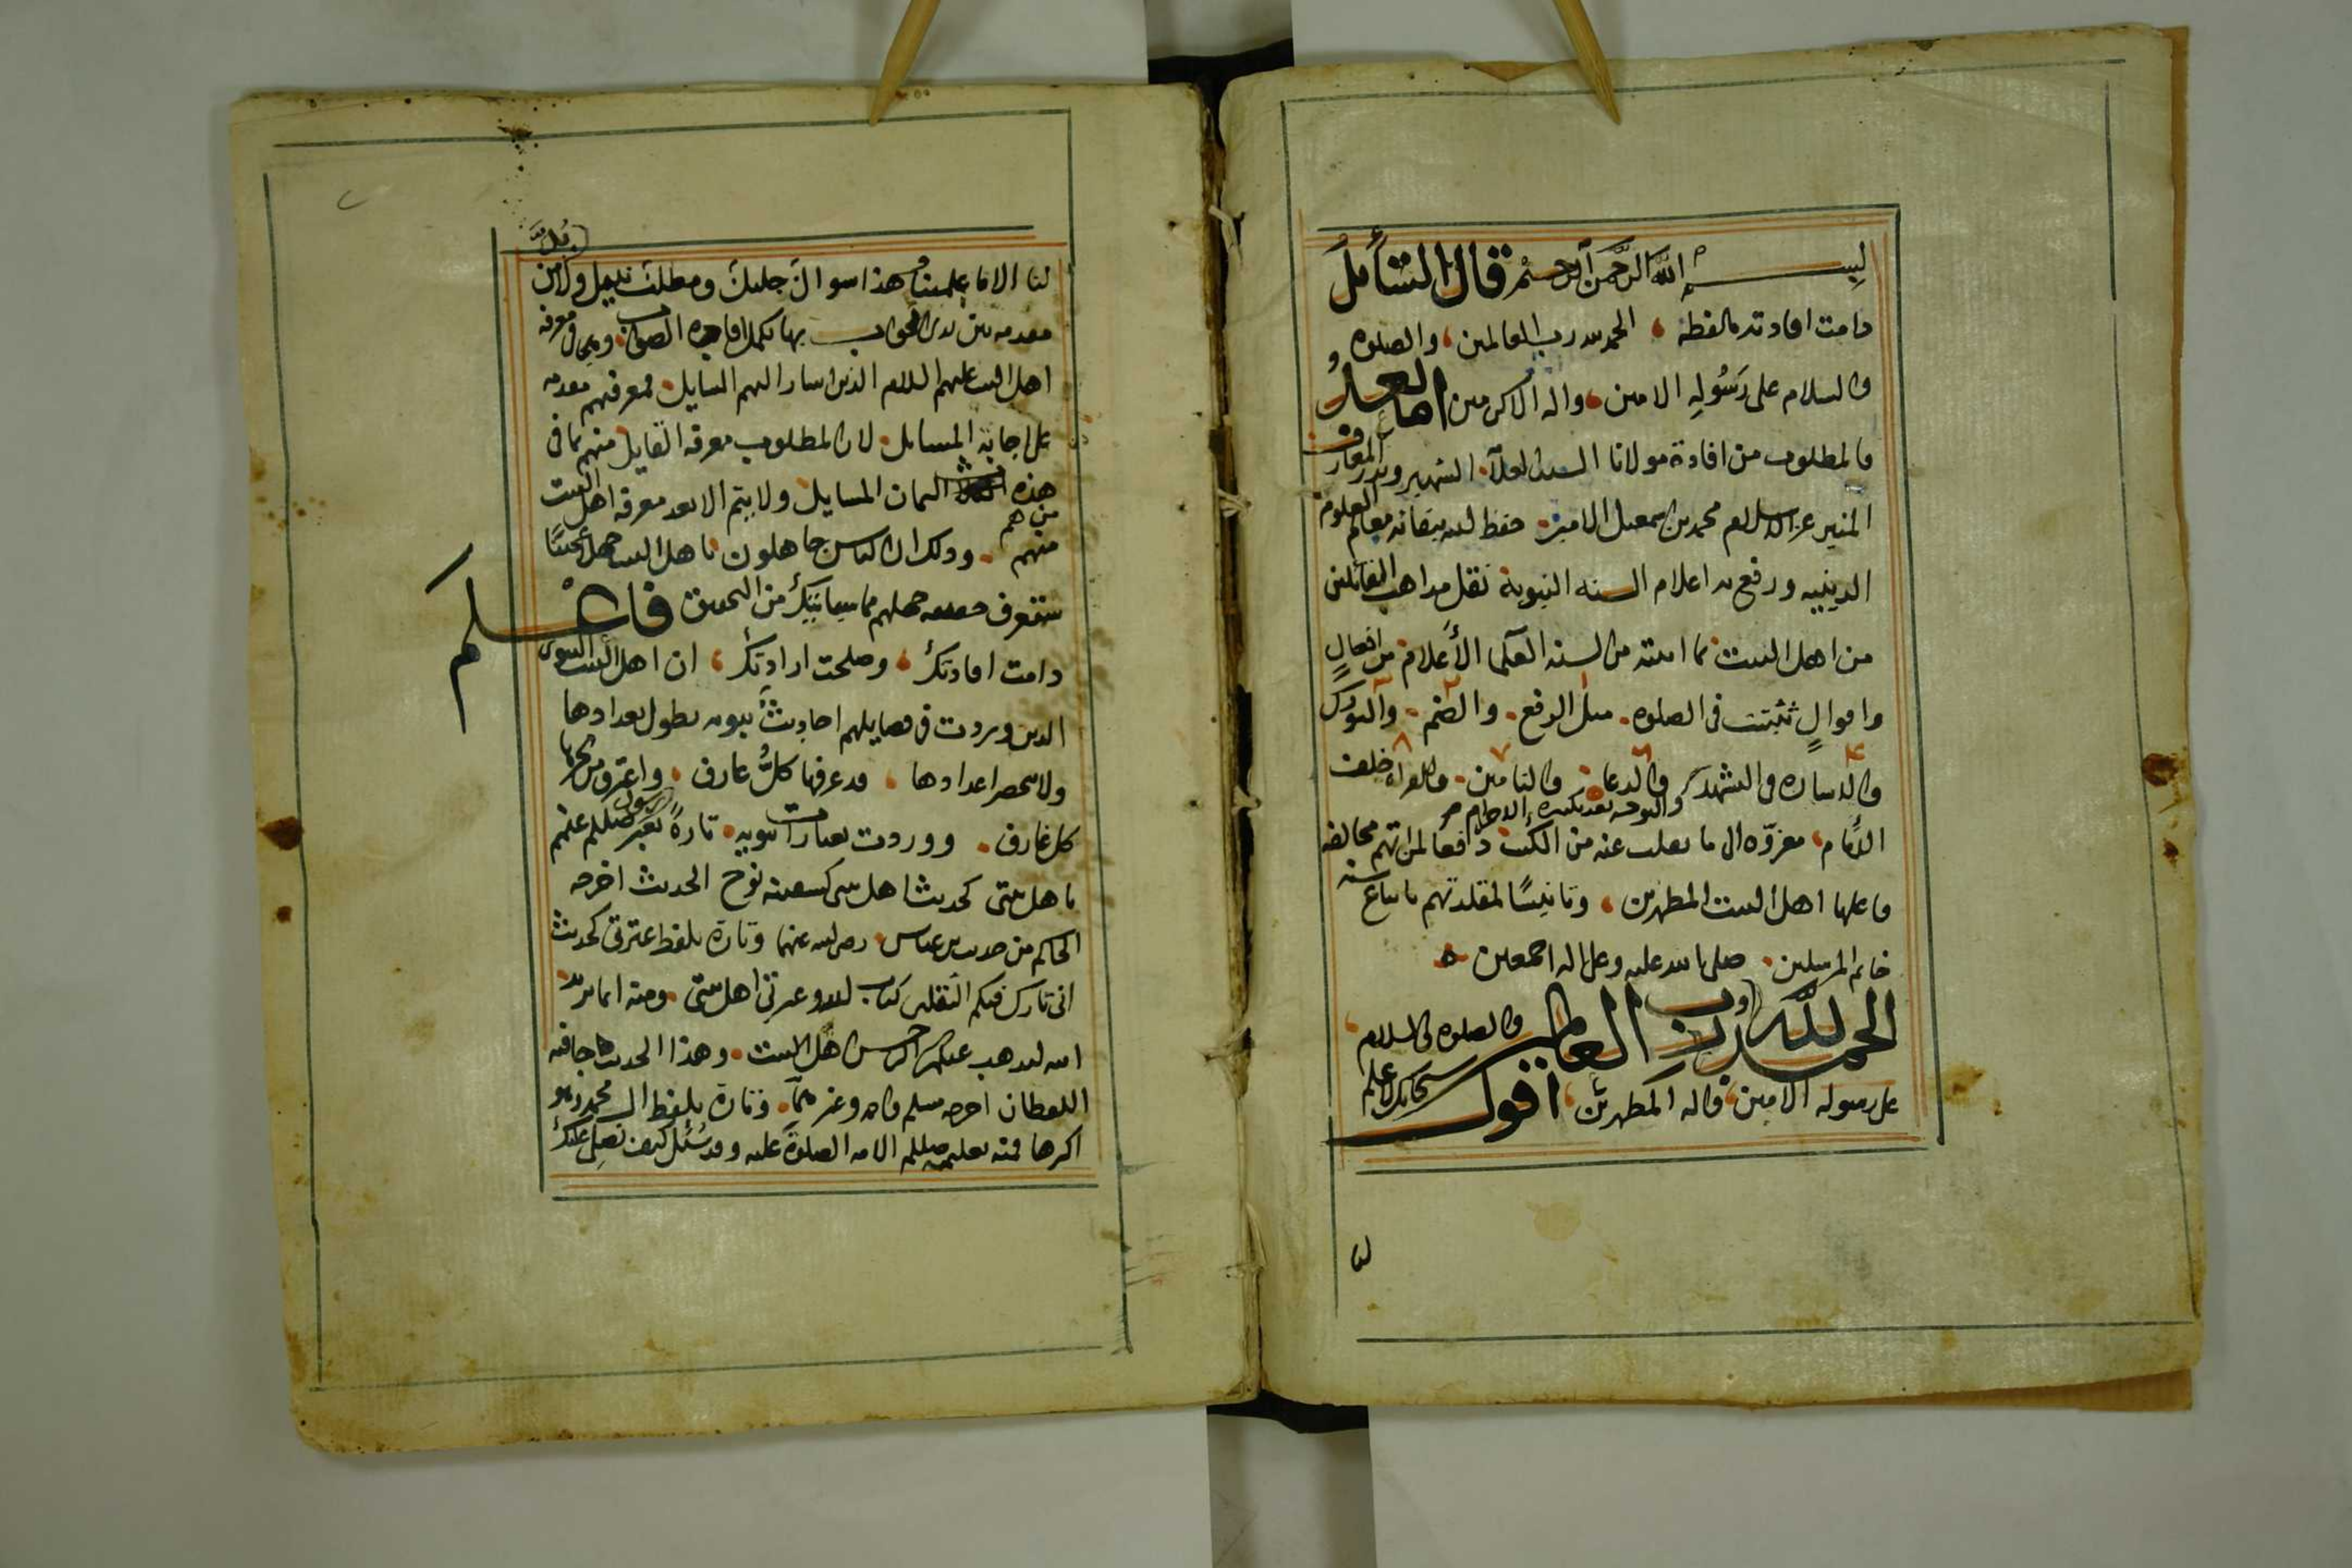 بسم الله الرحمن الرحيم قال السائل
دامت افادته ما لفظه الحمد لله رب العالمين والصلوه
والسلام على رسوله الامين واله الاكرمين وبعد
فالمطلوب من افادة مولانا السيد العلامة الشهير وبدر المعارف
المنير عز الاسلام محمد بن اسمعيل الامير حفظ الله ببقائه معالم العلوم
الدينيه ورفع به اعلام السنه النبوية نقل مذاهب القائلين
من اهل البيت بما اثبته من السنه العلما الأعلام من افعالٍ
واقوالٍ ثبتت في الصلوه مثل الرفع والضم والتورك
والاشاره في التشهد والدعا والتامين والقراه خلف
والتوجه بعد تكبيرة الاحرام
الامام معزوّه الى ما نقلت عنه من الكتب دافعا لمن اتهم مخالفه
فاعلها اهل البيت المطهرين وتانيسًا لمقلدتهم باتباع سنه
خاتم المرسلين صلى الله عليه وعلى اله اجمعين
الحمد لله رب العالمين والصلوه والسلام
على رسوله الامين واله المطهرين اقول سبحانك لا علم
لنا
لنا الا ما علمتنا هذا سوال جليل ومطلب نبيل ولا بد من
مقدمه بين يدى الجواب بها تكمل افاده الصواب وهي في معرفه
اهل البيت عليهم السلام الذين اشار اليهم السايل فمعرفتهم مقدمه
على اجابة المسايل لان المطلوب معرفه القايل منهم بما في
هذه الثمان المسايل ولا يتم الا بعد معرفه اهل البيت
من هم
منهم وذلك ان الناس جاهلون باهل البيت جهلا عجيبًا
ستعرف حقيقه جهلهم مما سياتيك من التحقيق فاعلم
دامت افادتك وصلحت ارادتك ان اهل البيت النبوى
الذين وردت في فضايلهم احاديث نبويه يطول تعدادها
ولا ينحصر اعدادها قد عرفها كلُّ عارف واغترف من بحرها
كل غارف ووردت بعبارات نبويه تارةً يعبر رسول صللم عنهم
باهل بيتي كحديث اهل بيتي كسفينه نوح الحديث اخرجه
الحاكم من حديث بن عباس رضي الله عنهما وتارة بلفظ عترتي كحديث
اني تارك فيكم الثقلين كتاب الله وعترتي اهل بيتي ومنه انما يريد
الله ليذهب عنكم الرجس اهل البيت وهذا الحديث جا فيه
اللفظان اخرجه مسلم واحمد وغيرهما وتارة بلفظ ال محمد وهو
اكثرها فمنه تعليمه صللم الامه الصلوة عليه وقد سُئل كيف نصلي عليك